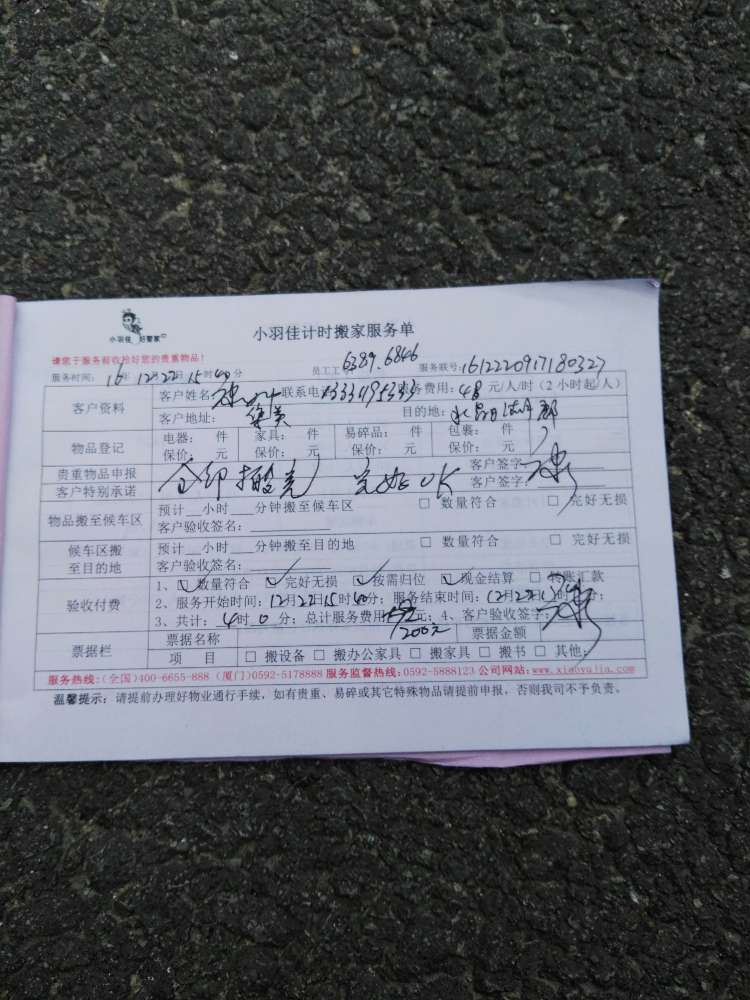 小羽佳 好管家
小羽佳计时搬家服务单
请您于服务前收拾好您的贵重物品!
服务时间: 16年 12月22日15时40分 员工工号: 6389.6846 服务联号:1612220917180327
客户资料
客户姓名 联系电话 服务费用: 48 元/人/时(2小时起/人)
客户地址: 集美 目的地: 水晶
物品登记
电器: 件 家具: 件 易碎品: 件 包裹: 件
保价: 元 保价: 元 保价: 元 保价: 元
贵重物品申报 全部搬完 完好OK 客户签字:
客户特别承诺 客户签字:
物品搬至候车区
预计__小时___分钟搬至候车区 □ 数量符合 □ 完好无损
客户验收签名:
候车区搬至目的地
预计__小时___分钟搬至目的地 □ 数量符合 □ 完好无损
客户验收签名:
验收付费
1、☑数量符合 ☑完好无损 ☑按需归位 ☑现金结算 □ 转账汇款
2、服务开始时间:12月22日15时40分; 服务结束时间:12月22日
3、共计: 4时 0 分; 总计服务费用: 元; 4、客户验收签字:
200元
票据栏
票据名称 票据金额
项 目 □ 搬设备 □ 搬办公家具 □ 搬家具 □ 搬书 □ 其他:
服务热线:(全国)400-6655-888 (厦门)0592-5178888 服务监督热线:0592-5888123 公司网站:www.xiaoyujia.com
温馨提示: 请提前办理好物业通行手续, 如有贵重、易碎或其它特殊物品请提前申报, 否则我司不予负责。